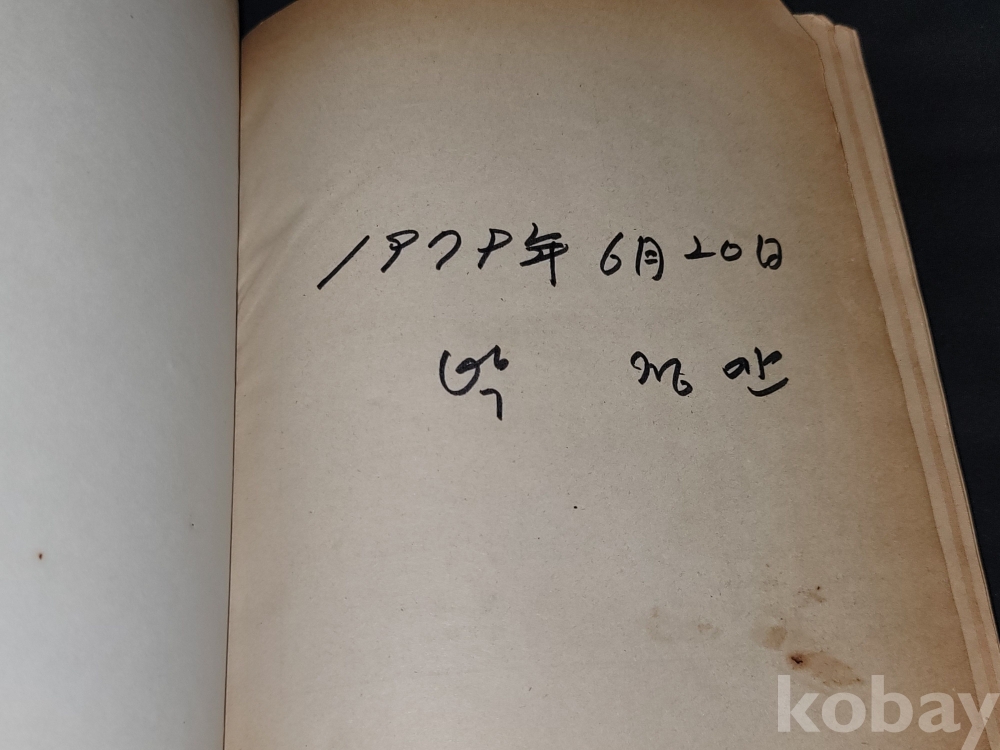 1979年 6月 20日
박
kobay